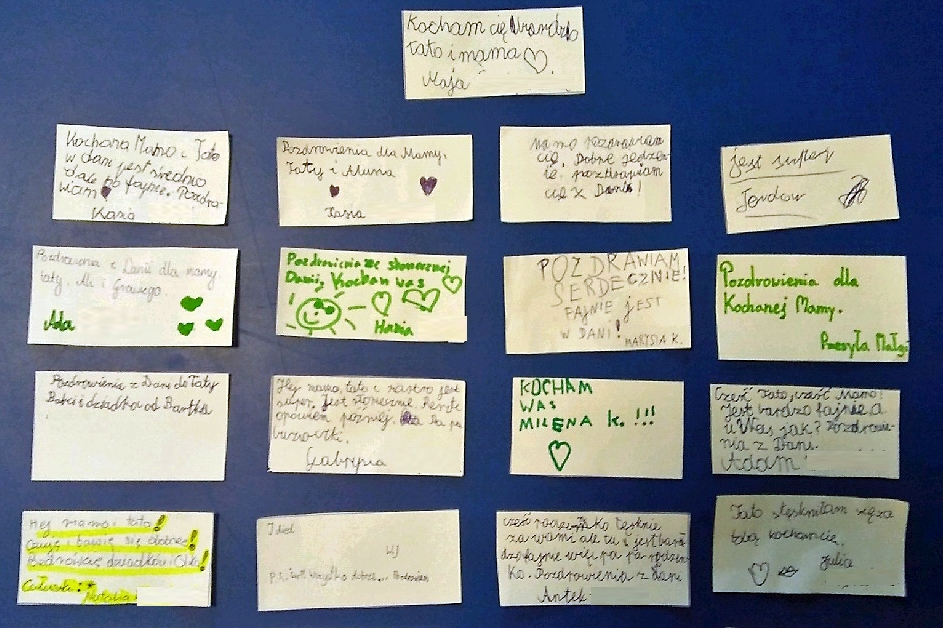 Kocham cię bardzo
tato i mama
Maja
Kochana Mamo i Tato
w dani jest średnio
ale po fajne. Pozdra-
wiam
Kasia
Pozdrowienia dla Mamy,
Taty i
Kasia
Mamo pozdrawiam
cię. Dobre jedzen-
ie, pozdrawiam
cię z Danii!
Jest super
Jordow
Pozdrowienia z Danii dla mamy,
taty, Ali i
Ada
Pozdrowienia ze słonecznej
Danij, Kocham was
!
Hania
POZDRAWIAM
SERDECZNIE!
FAJNIE JEST
W DANI!
MARYSIA K.
Pozdrowienia dla
Kochanej Mamy.
Przesyła Małgo
Pozdrowienia z Dani do Taty
Babci i dziadka od Bartka
Hej mamo, tato i siostro jest
super. Jest słonecznie. Resztę
opowiem później. Pa pa
buziaczki.
Gabrysia
KOCHAM
WAS
MILENA K. !!!
Cześć Tato, cześć Mamo!
Jest bardzo fajnie a
u Was jak? Pozdrowie-
nia z Dani.
Adam!
Hej mamo i tato!
Czuję i bawię się dobrze!
Pozdrówcie dziadków i Olka!
Całuski
Natalia
P.S. jest wszystko dobrze...
cześć tęsknie
za wami ale tu jest bard
dzo fajnie więc pa pa rodzin-
ko. Pozdrowienia z Dani
Antek
Tato stęskniłam się za
tobą kochancie.
Julia